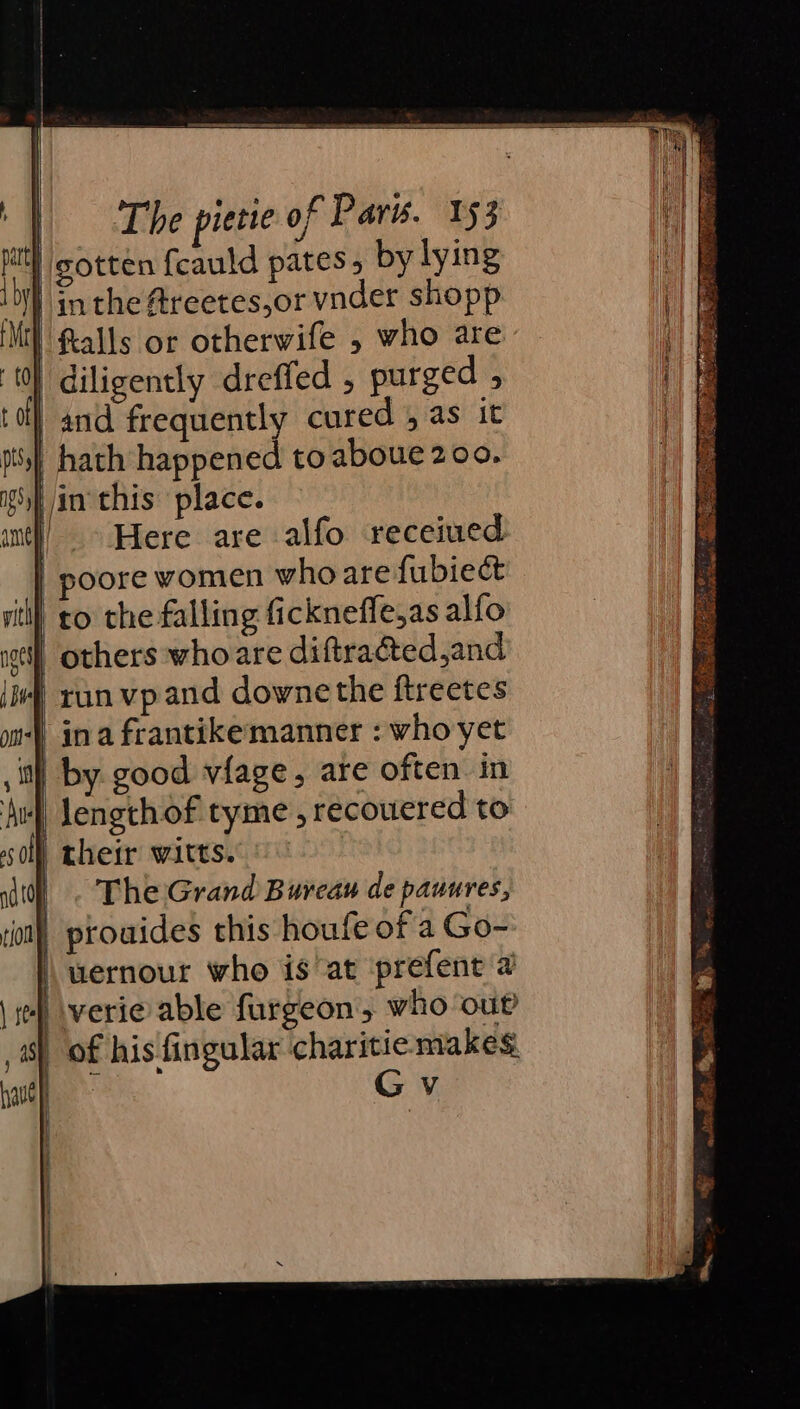 The pietie of Paris. 153
gotten ſcauld pates, by lying
in the ſtreetes,or vnder shopp
ſtalls or otherwiſe , who are
diligently dreſſed , purged ,
and frequently cured , as it
hath happened to aboue 200.
in this place.
Here are alſo receiued
poore women who are ſubiect
to the falling ſickneſſe,as alſo
others who are diſtracted,and
run vp and downe the ſtreetes
in a frantike manner : who yet
by good vſage, are often in
length of tyme , recouered to
their witts.
The Grand Bureau de pauures,
prouides this houſe of a Go-
uernour who is at preſent a
verie able ſurgeon, who out
of his ſingular charitie makes
G v